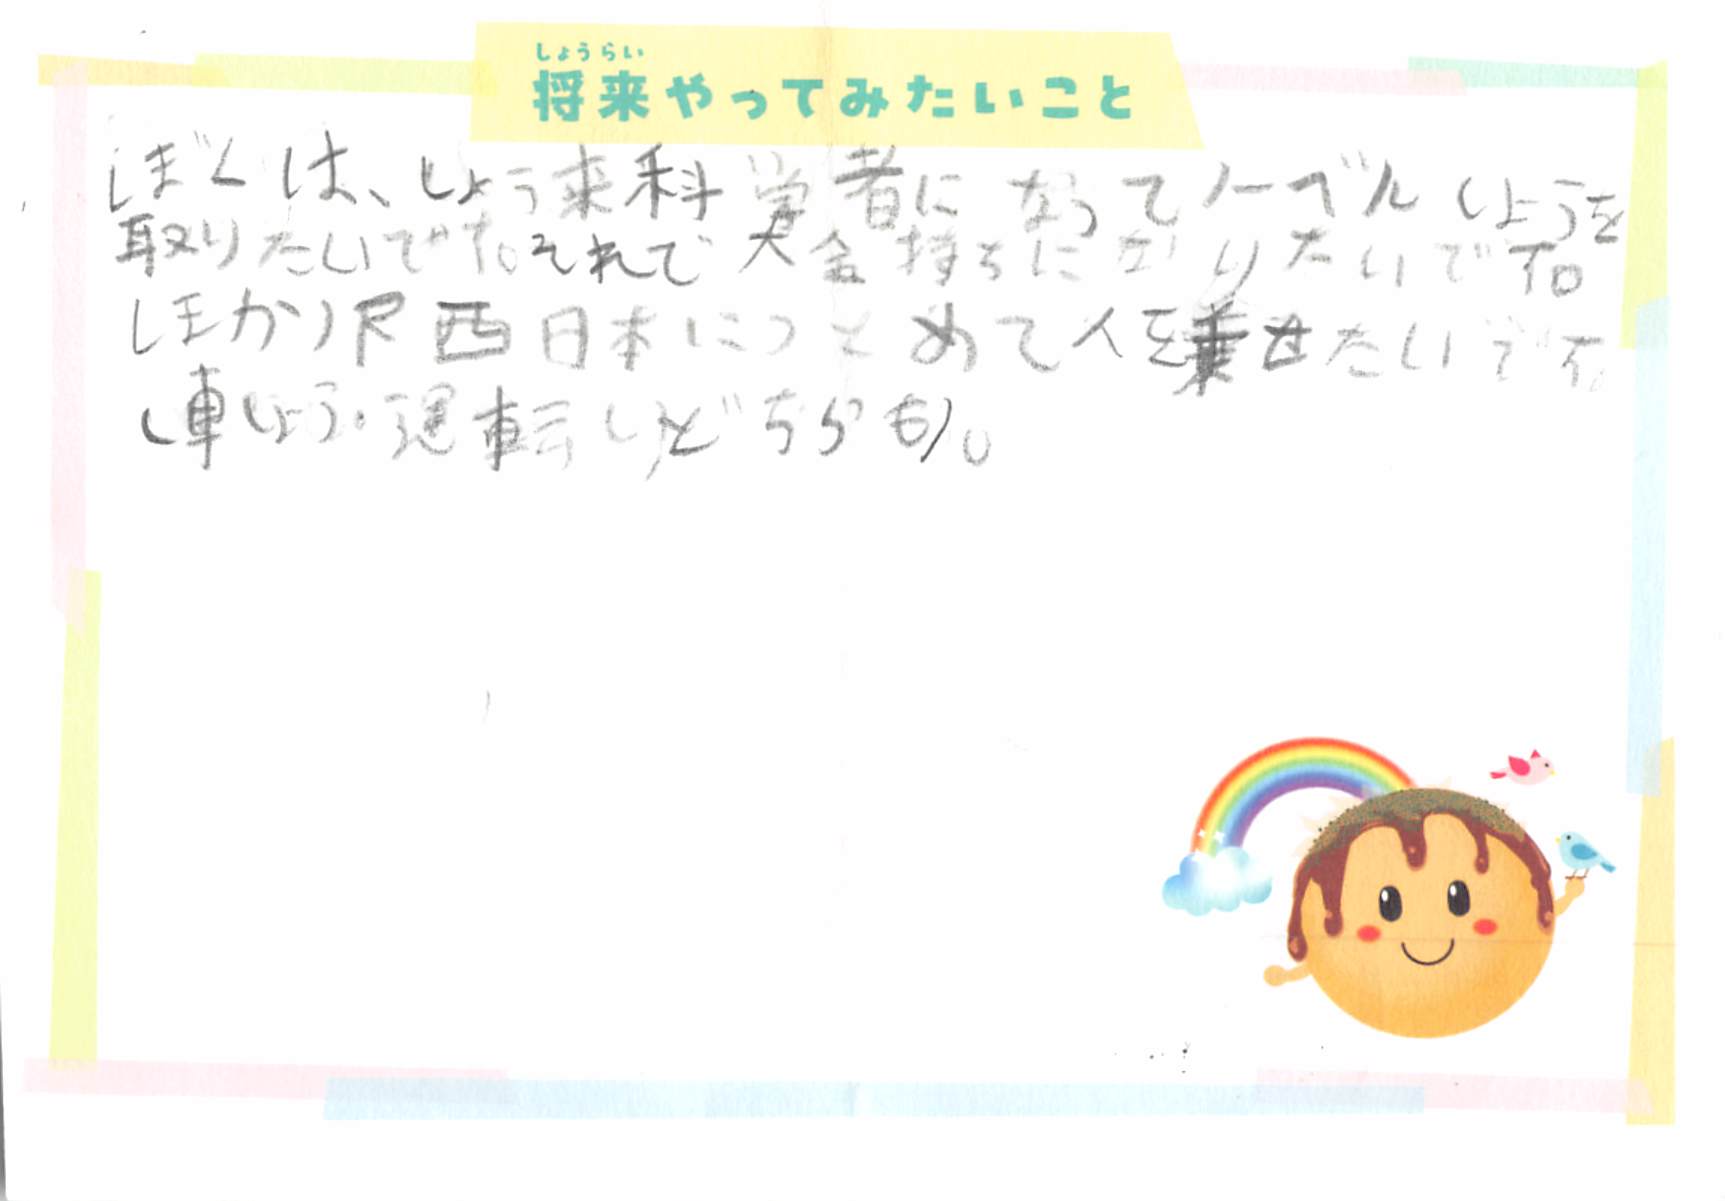 しょうらい
将来やってみたいこと
ぼくは、しょう来科学者になってノーベルしょうを
取りたいです。それで大金持ちになりたいです。
ほかJR西日本につとめて人を乗せたいです
(車しょう・運転しどちらも)。